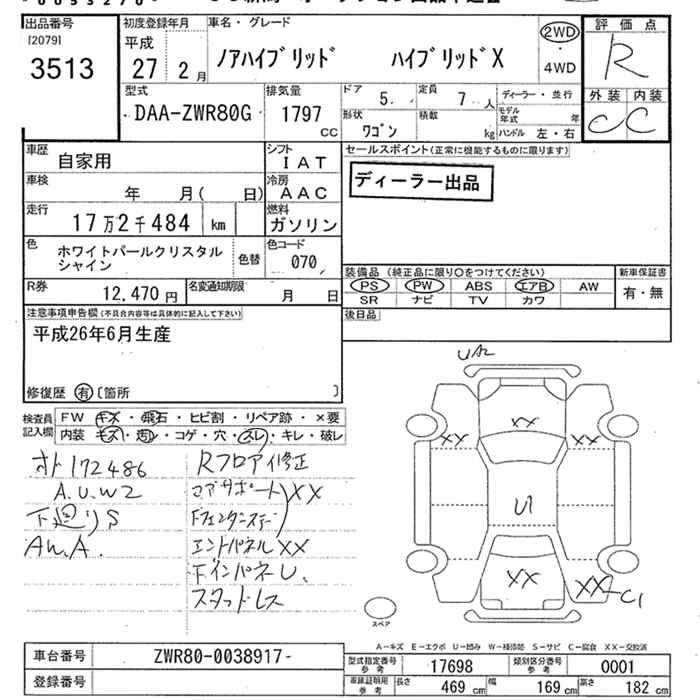 出品番号
[2079]
3513
初度登録年月
平成
27 2月
車名・グレード
ノアハイブリッド ハイブリッドX
2WD
・
4WD
評価点
R
外装 内装
C C
型式
DAA-ZWR80G
排気量
1797
cc
ドア
5.
定員
7 人
形状
ワゴン
積載
kg
ディーラー・並行
モデル年式 年
ハンドル 左・右
車歴
自家用
シフト
IAT
車検
年 月( 日)
冷房
AAC
走行
17万2千484 km
燃料
ガソリン
色
ホワイトパールクリスタル
シャイン
色替
色コード
070
R券
12,470円
名変通知期限
月 日
セールスポイント(正常に機能するものに限ります)
ディーラー出品
装備品(純正品に限り〇をつけてください)
PS PW ABS エアB AW
SR ナビ TV カワ
新車保証書
有・無
後日品
注意事項申告欄(不具合内容等は具体的に記入して下さい)
平成26年6月生産
修復歴 有 〔箇所 〕
検査員
記入欄
FW キズ・飛石・ヒビ割・リペア跡・×要
内装 キズ・汚レ・コゲ・穴・スレ・キレ・破レ
172486
A.U.W2
下廻りS
AW.A.
Rフロア修正
コアサポートXX
エントパネルXX
スタッドレス
UA2
XX
XX
XX
U1
XX
XX-C1
スペア
A-キズ E-エクボ U-凹み W-補修跡 S-サビ C-腐食 XX-交換済
車台番号
ZWR80-0038917-
登録番号
型式指定番号
参考
17698
類別区分番号
参考
0001
車庫証明用
参考
長さ 469 cm
幅 169 cm
高さ 182 cm